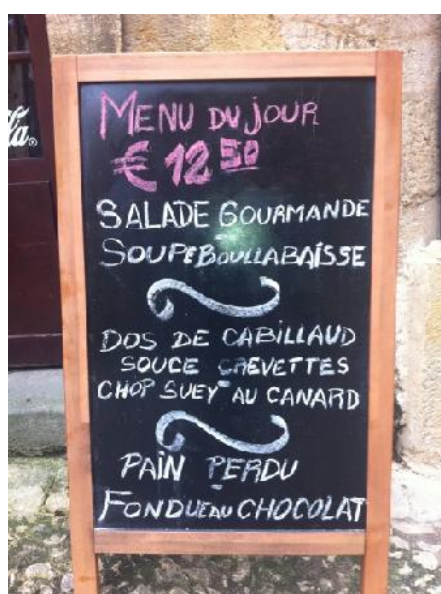 MENU DU JOUR
€ 12 50
SALADE GOURMANDE
SOUPE BOULLABAÏSSE
DOS DE CABILLAUD
SOUCE CREVETTES
CHOP SUEY AU CANARD
PAIN PERDU
FONDUE AU CHOCOLAT